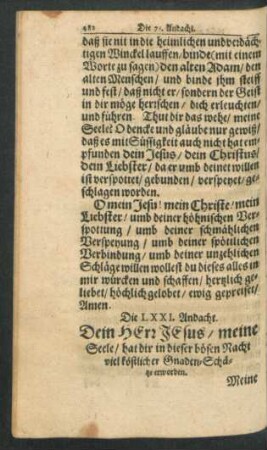 482 Die 70. Andacht.
daß sie nit in die heimlichen und verdäch-
tigen Winckel lauffen/ binde (mit einem
Worte zu sagen) den alten Adam/ den
alten Menschen/ und binde ihm steiff
und fest/ daß nicht er/ sondern der Geist
in dir möge herrschen/ dich erleuchten/
und führen. Thut dir das wehe/ meine
Seele? O dencke und gläube nur gewiß/
daß es mit Süssigkeit auch nicht hat em-
pfunden dein Jesus/ dein Christus/
dein Liebster/ da er umb deinet willen
ist verspottet/ gebunden/ verspeyet/ ge-
schlagen worden.
O mein Jesu! mein Christe/ mein
Liebster/ umb deiner höhnischen Ver-
spottung/ umb deiner schmählichen
Verspeyung/ umb deiner spöttlichen
Verbindung/ umb deiner unzehlichen
Schläge willen wollest du dieses alles in
mir würcken und schaffen/ hertzlich ge-
liebet/ höchlich gelobet/ ewig gepreiset/
Amen.
Die LXXI. Andacht.
Dein HErr JEsus/ meine
Seele/ hat dir in dieser bösen Nacht
viel köstlicher Gnaden-Schä-
tze erworben.
Meine